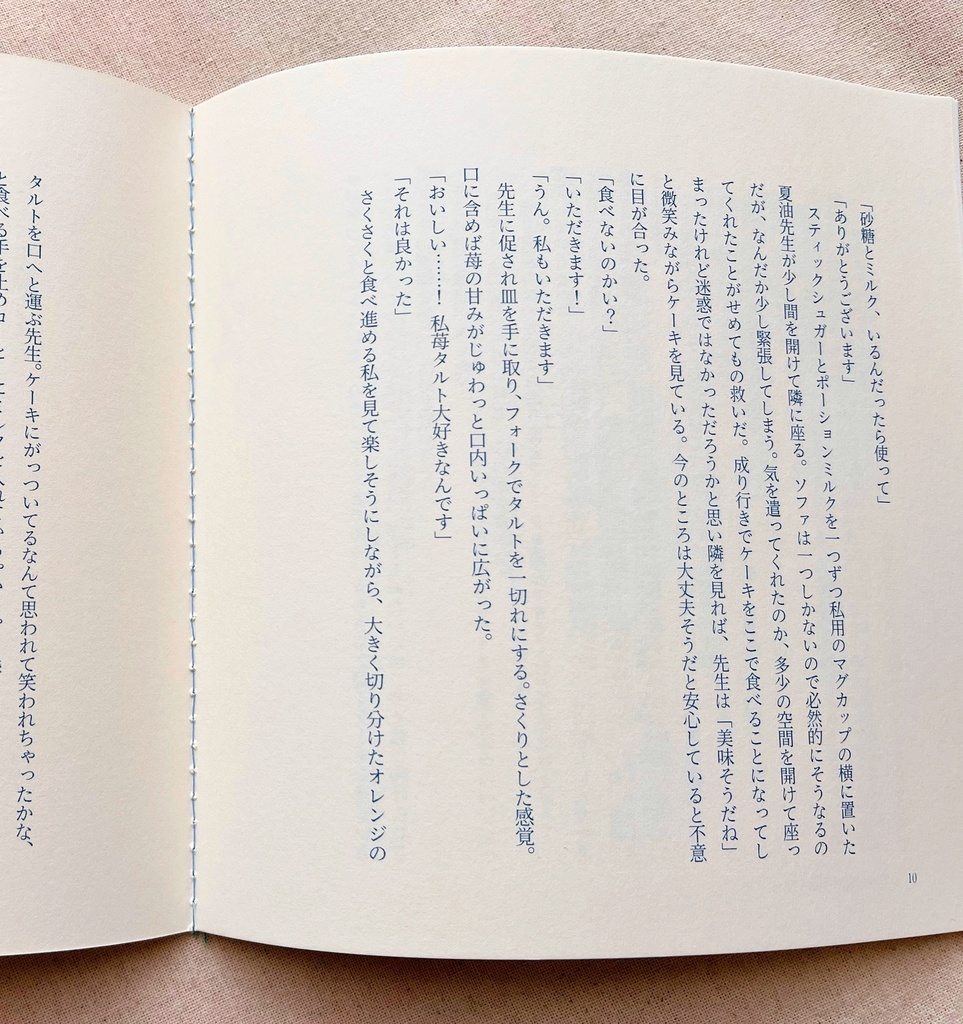 「砂糖とミルク、いるんだったら使って」
「ありがとうございます」
スティックシュガーとポーションミルクを一つずつ私用のマグカップの横に置いた
夏油先生が少し間を開けて隣に座る。ソファは一つしかないので必然的にそうなるの
だが、なんだか少し緊張してしまう。気を遣ってくれたのか、多少の空間を開けて座っ
てくれたことがせめてもの救いだ。成り行きでケーキをここで食べることになってし
まったけれど迷惑ではなかっただろうかと思い隣を見れば、先生は「美味そうだね」
と微笑みながらケーキを見ている。今のところは大丈夫そうだと安心していると不意
に目が合った。
「食べないのかい？」
「いただきます！」
「うん。私もいただきます」
先生に促され皿を手に取り、フォークでタルトを一切れにする。さくりとした感覚。
口に含めば苺の甘みがじゅわっと口内いっぱいに広がった。
「おいしい……！　私苺タルト大好きなんです」
「それは良かった」
さくさくと食べ進める私を見て楽しそうにしながら、大きく切り分けたオレンジの
10
タルトを口へと運ぶ先生。ケーキにがっついてるなんて思われて笑われちゃったかな、
と食べる手を止め